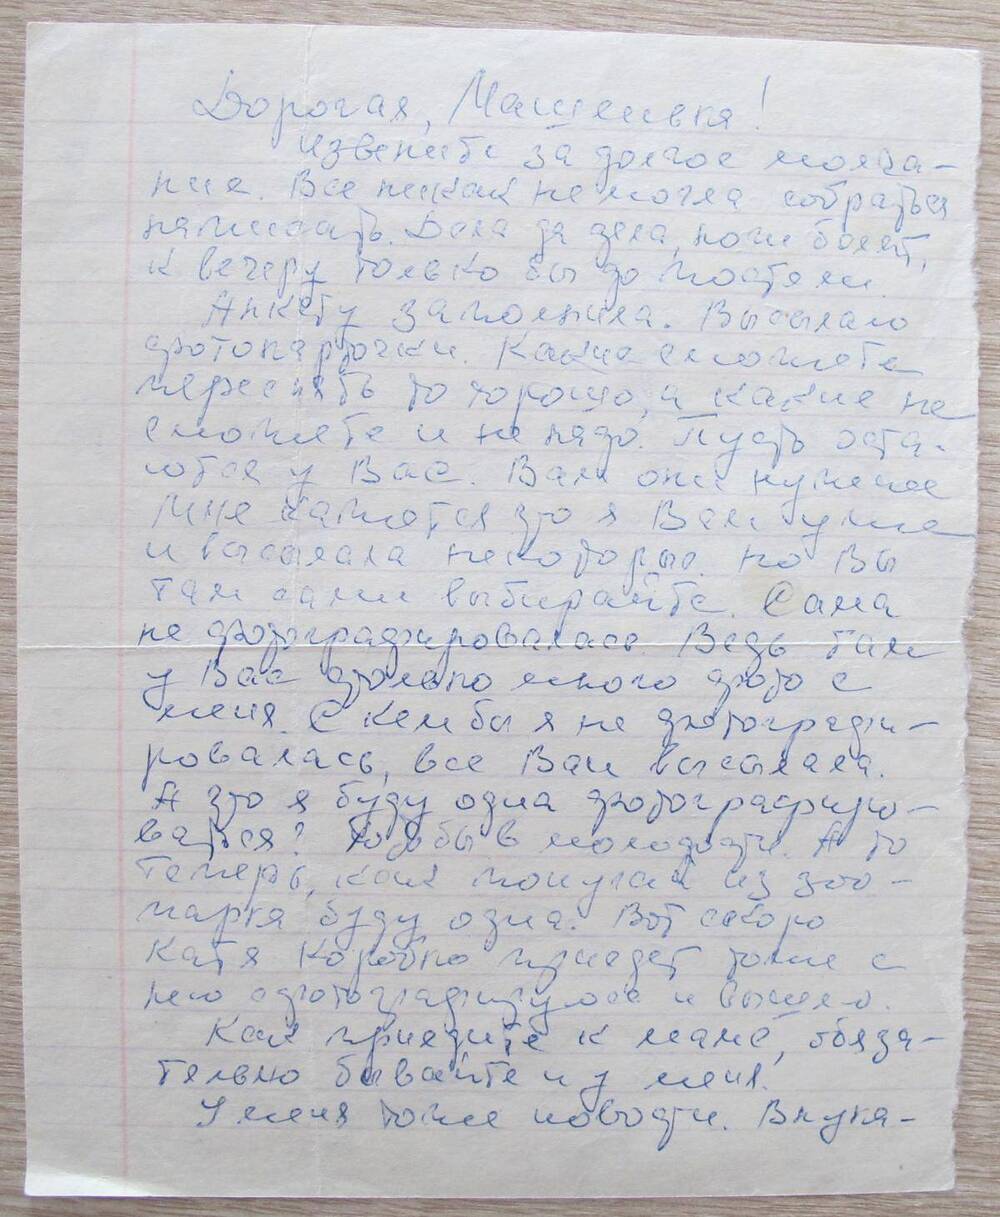 Дорогая, Машенька!
извените за долгое молча-
ние. Все никак не могла собраться
написать. Дела да дела, ноги болят,
к вечеру только бы до постели.
Анкету заполнила. Высылаю
фотокарточки. Какие сможете
переснять то хорошо, а какие не
сможете и не надо. Пусть оста-
ются у Вас. Вам они нужнее
Мне кажется это я Вам уже
и высылала некоторые. но Вы
там сами выбирайте. Сама
не фотографировалась. Ведь там
у Вас столько много фото с
меня. С кем бы я не фотографи-
ровалась, все Вам высылала.
А это я буду одна фотографиро-
ваться? Хотя бы в молодости. А то
теперь, как попугай из зоо-
парка буду одна. Вот скоро
Катя Коробко приедет тоже с
нею сфотографируюсь и вышлю.
Как приедите к маме, обяза-
тельно бывайте и у меня.
У меня тоже новости. Внука-